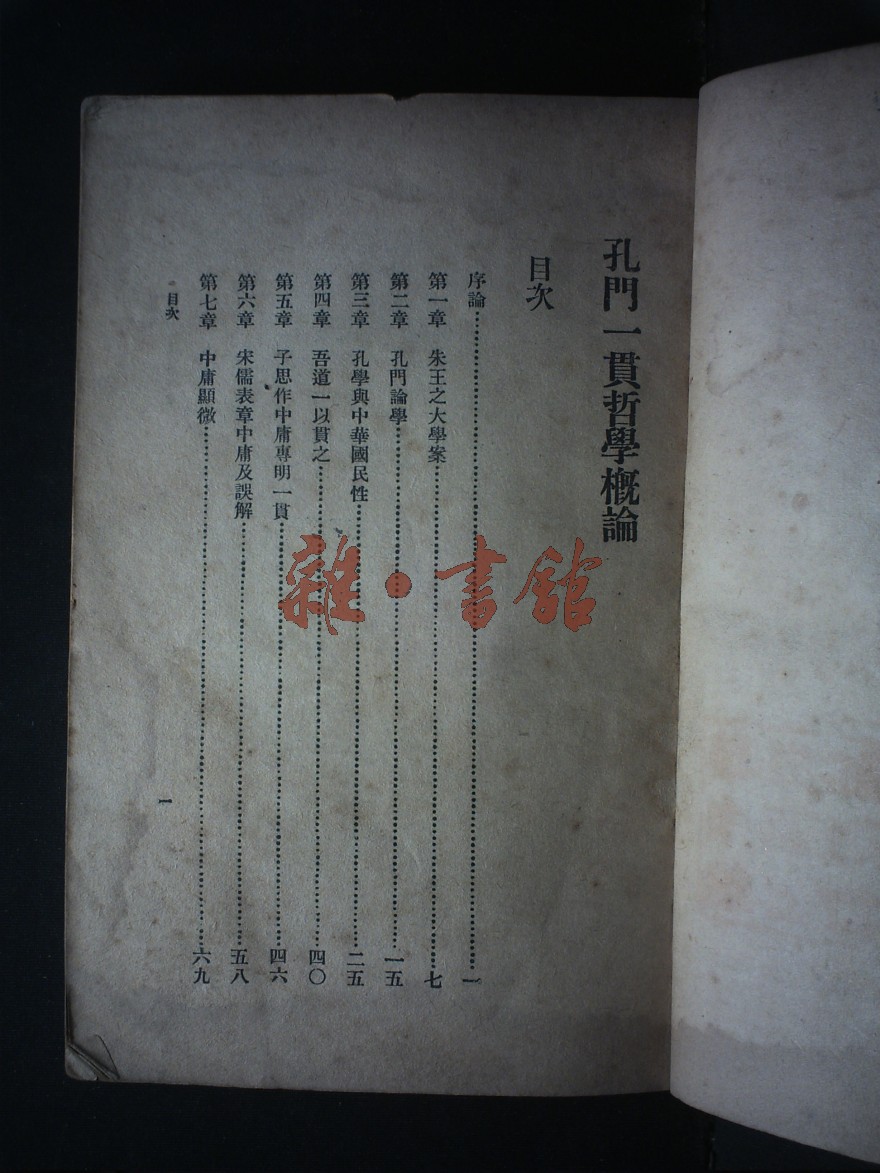 孔門一貫哲學槪論
目次
序論⋯⋯⋯⋯⋯⋯⋯⋯一
第一章　朱王之大學案⋯⋯⋯⋯⋯⋯⋯⋯七
第二章　孔門論學⋯⋯⋯⋯⋯⋯⋯⋯一五
第三章　孔學與中華國民性⋯⋯⋯⋯⋯⋯⋯⋯二五
第四章　吾道一以貫之⋯⋯⋯⋯⋯⋯⋯⋯四〇
第五章　子思作中庸專明一貫⋯⋯⋯⋯⋯⋯⋯⋯四六
第六章　宋儒表章中庸及誤解⋯⋯⋯⋯⋯⋯⋯⋯五八
第七章　中庸顯微⋯⋯⋯⋯⋯⋯⋯⋯六九
目次　一
雜·書館